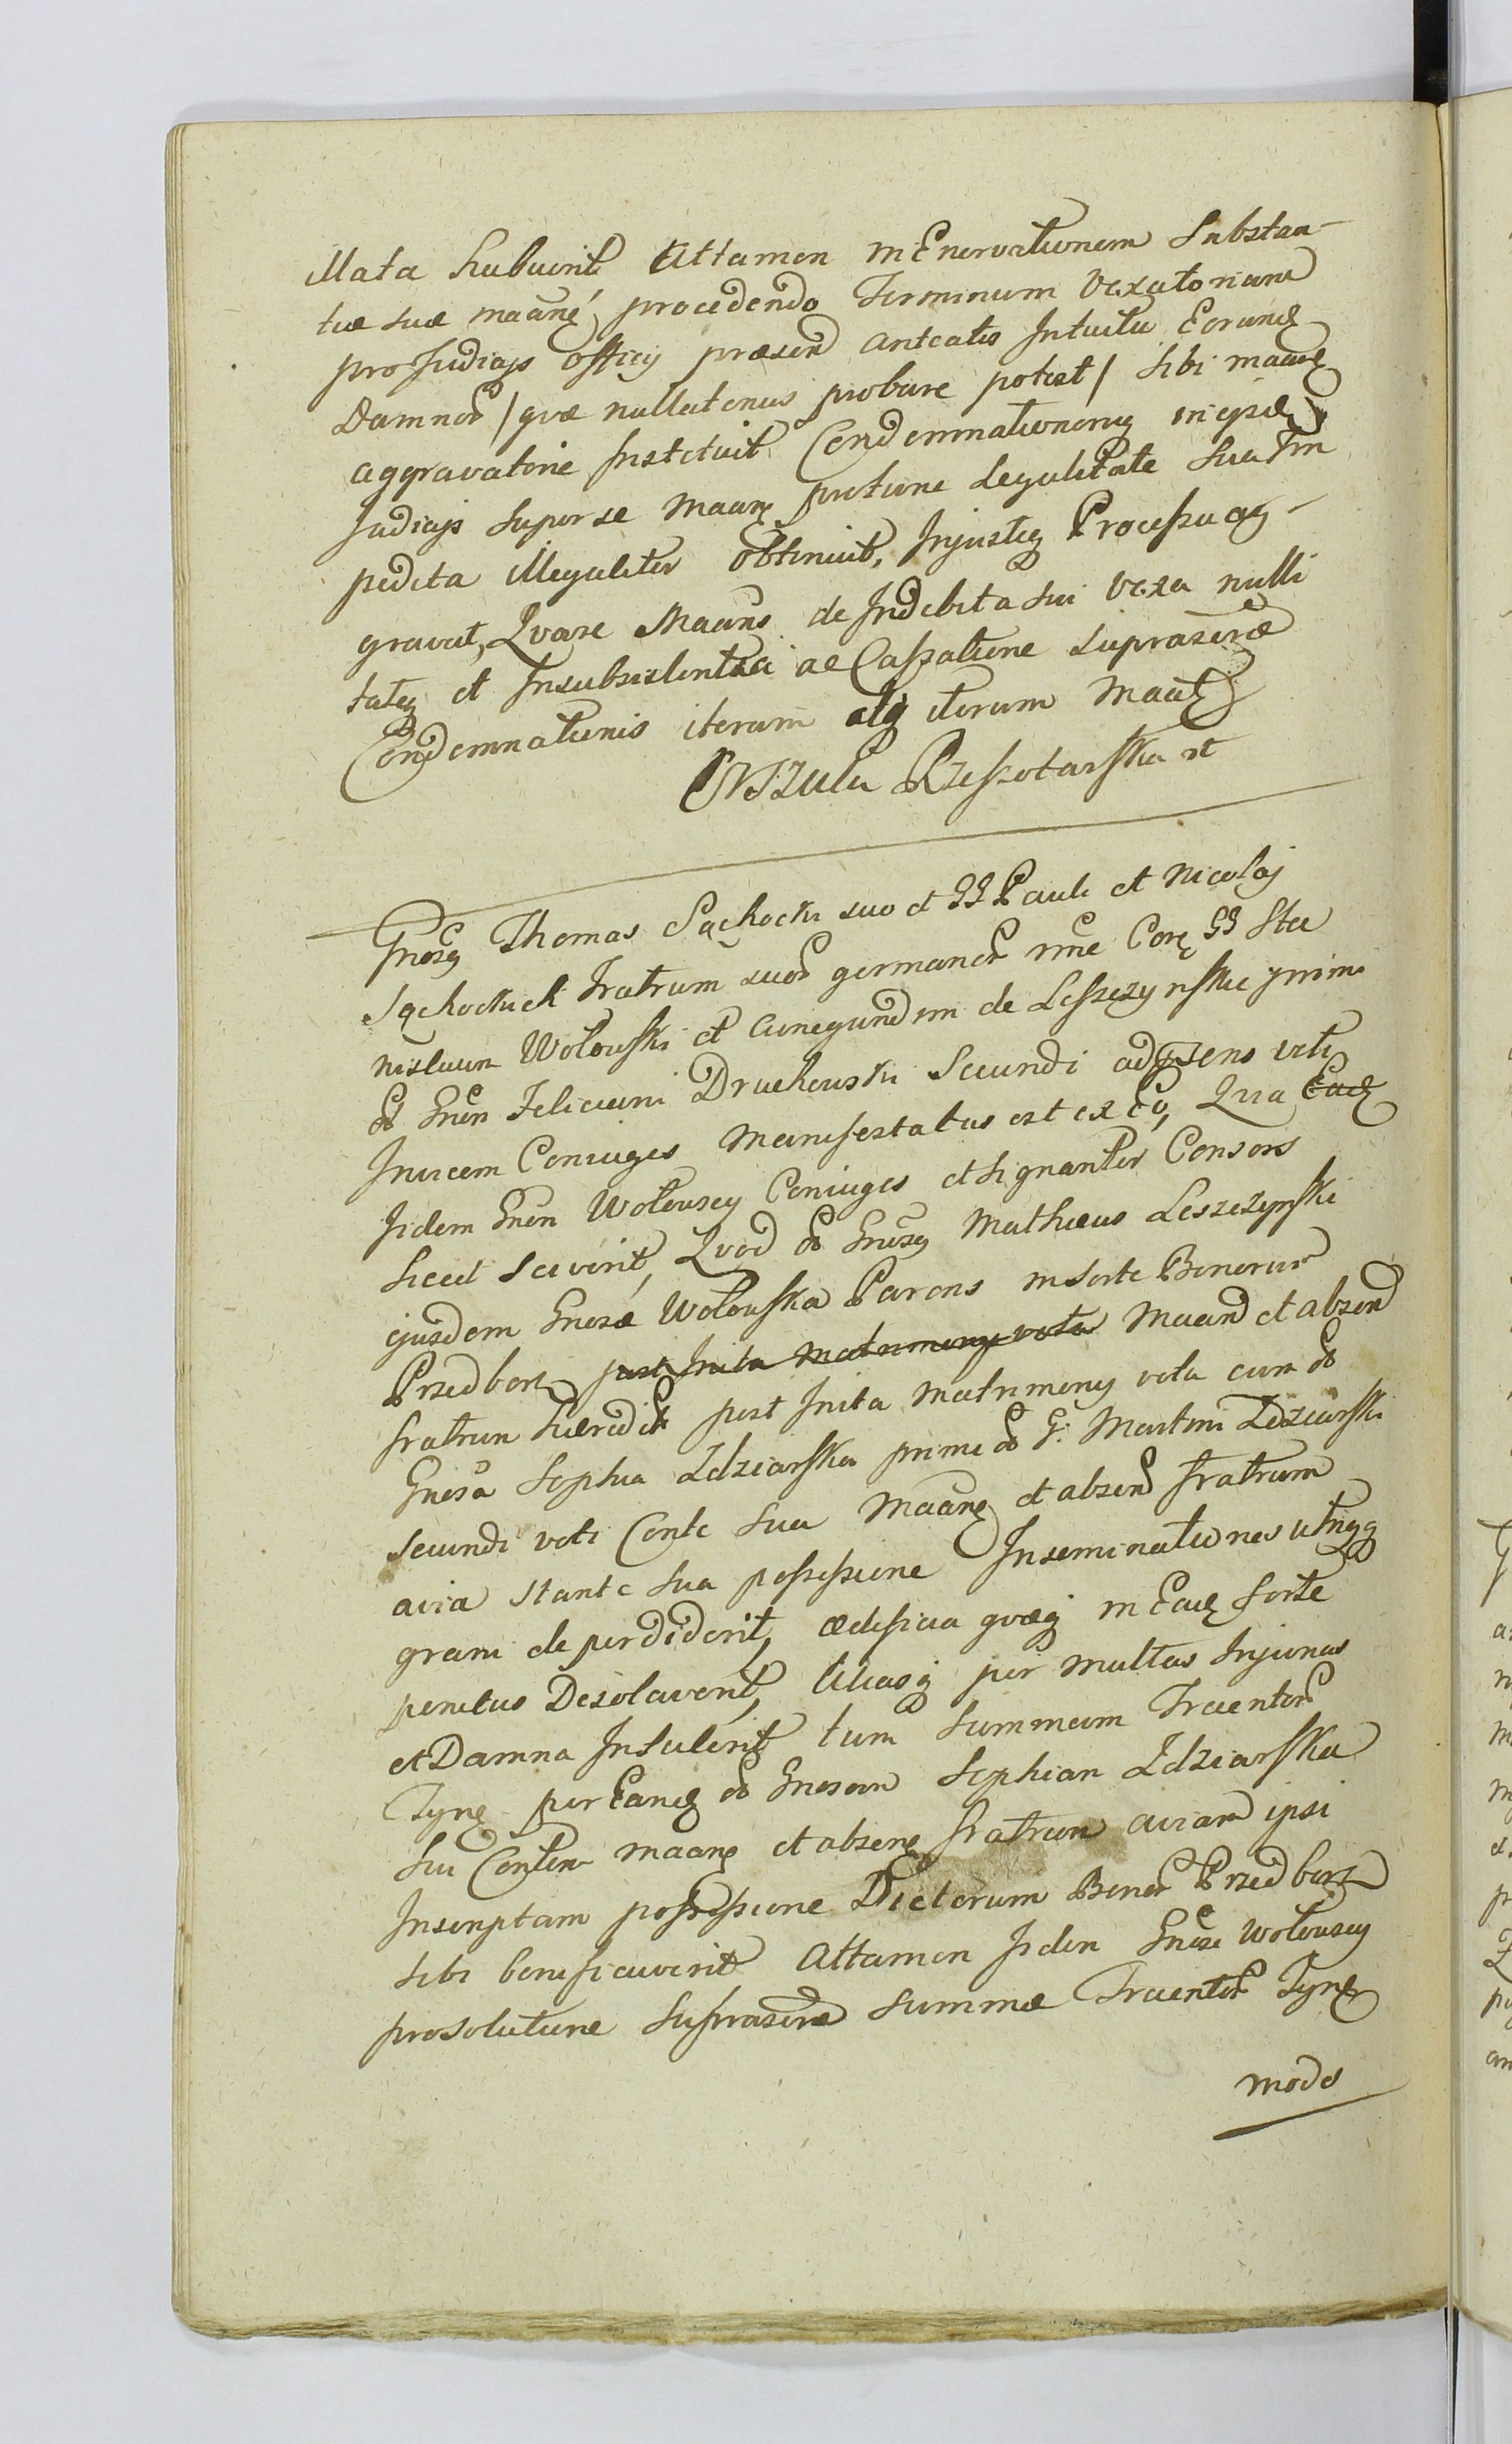 illata habuerit Attamen in Enervationem Substan-
tiæ suæ maanę procedendo Terminum Vexatorium
pro Judicijs officij præsen anteatis Intuitu Eorundę
Damnor / qvæ nullatenus probare potest / sibi maanę
aggravatorie Instituit Condemnationemq in ijsdę
Judicijs super se maanę potiore legalitate sua Im
pedita illegaliter obtinuit, Injusteq Processu ag-
gravat, Qvare Maans de Indebita sui vexa nulli
tateq et Insubsistentia ac Cassatione suprascræ
Condemnationis iterum atq iterum maatę
Urszula Rzeszotarska rt
Gnosq Thomas Sąchocki suo et GG Pauli et Nicolaj
Sąchockich Fratrum suor germanor nne Corę GG Sta
nislaum Wołowski et Cunegundem de Leszczynskie primi
do Gnen Feliciani Druchowski Secundi adpsens voti
Invicem Coniuges Manifestatus est ex Eo, Qvia Eadę
Jidem Gnen Wołowscy Coniuges et signanter Consors
sicut sciverit, Qvod do Gnosq Mathæus Leszczynski
ejusdem Gnosæ Wołowska Parens in sorte Bonorum
Przedborz post Inita Matrimony vota Maan et absen
fratrum hæredit post Inita Matrimony vota cum do
Gnosa Sophia Zdziarska primi do G: Martini Zdziarski
secundi voti Conte sua Maanę et absen fratrum
avia stante sua possessione Inseminationes utriqq
grani deperdiderit, ædificia qvæq in Eadę sorte
penitus Desolaverit, Aliasq per multas Injurias
et Damna Intulerit tum summam Trecentor
Tynę per Eandę do Gnosam Sophiam Zdziarska
sui Contem maanę et absenę fratrum aviam ipsi
Inscriptam possessione Dictorum Bonor Przedborz
sibi bonificaverit Attamen Jidem Gnosi Wołowscy
pro solutione suprascræ summæ Trecentor Tynę
modo